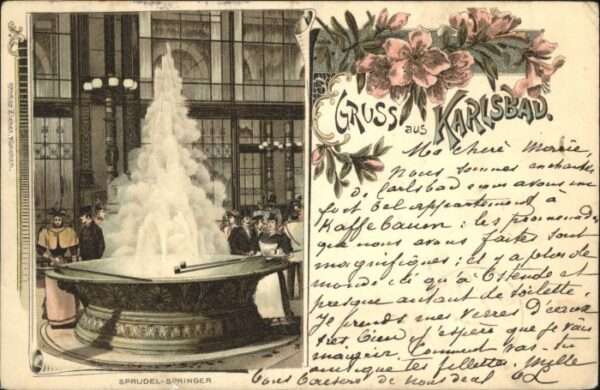 GRUSS aus KARLSBAD.
Ma chère
nous sommes enchantés
de Carlsbad avons un
fort bel appartement à
Kaffebaum : les promenades
que nous avons faites sont
magnifiques ; il y a plus de
monde ici qu'à Ostende et
presque autant de toilette.
Je prends mes verres d'eaux
très bien j'espère que je vais
maigrir Comment vas-tu
ainsi que les fillettes. Mille
de nous deux
SPRUDEL-SPRINGER